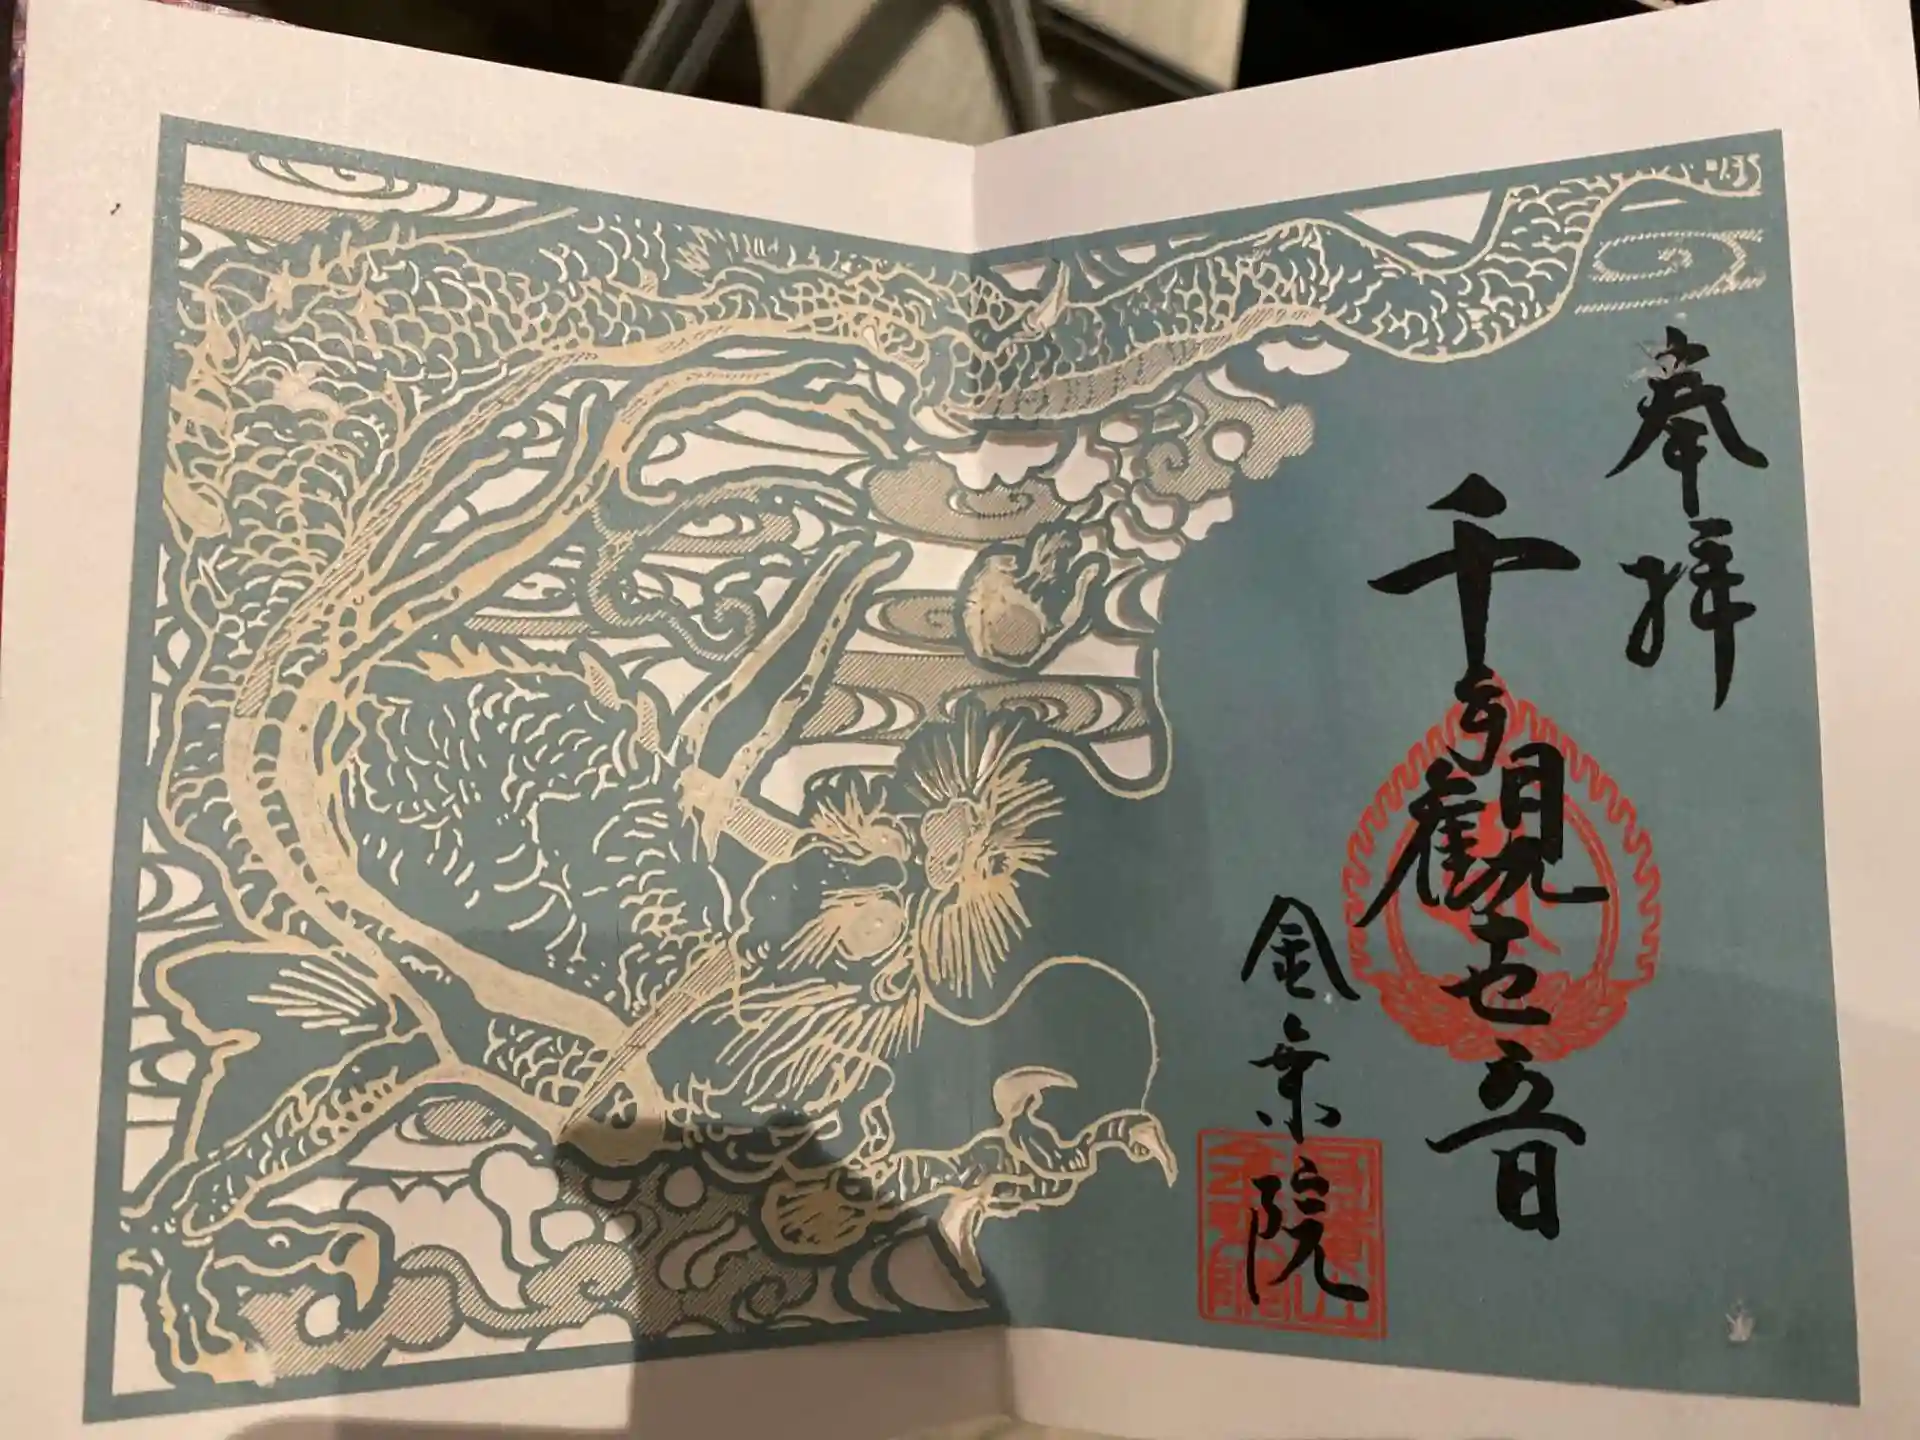 奉拝
千手観世音
金乗院